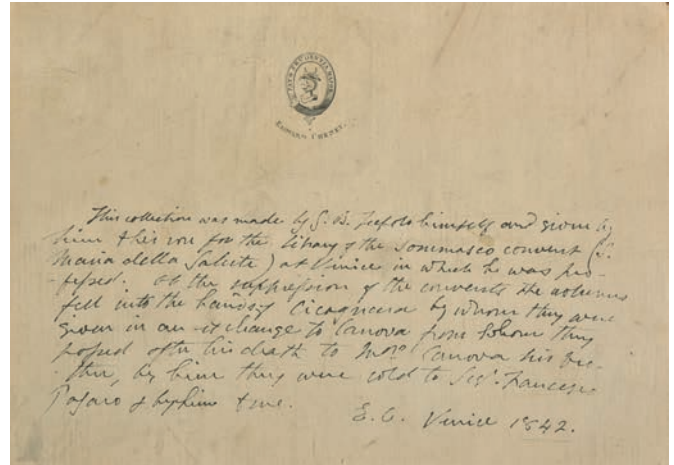 EDWARD CHENEY.
This collection was made by G. B. Tiepolo himself and given by
him to his son for the library of the Sommasco convent (S.
Maria della Salute) at Venice in which he was pro-
fessed. At the suppression of the convents the volumes
fell into the hands of Cicognara by whom they were
given in an exchange to Canova from whom they
passed after his death to Monr. Canova his bro-
ther, by him they were sold to Sigr. Francesco
Pesaro & by him to me.
E. C. Venice 1842.